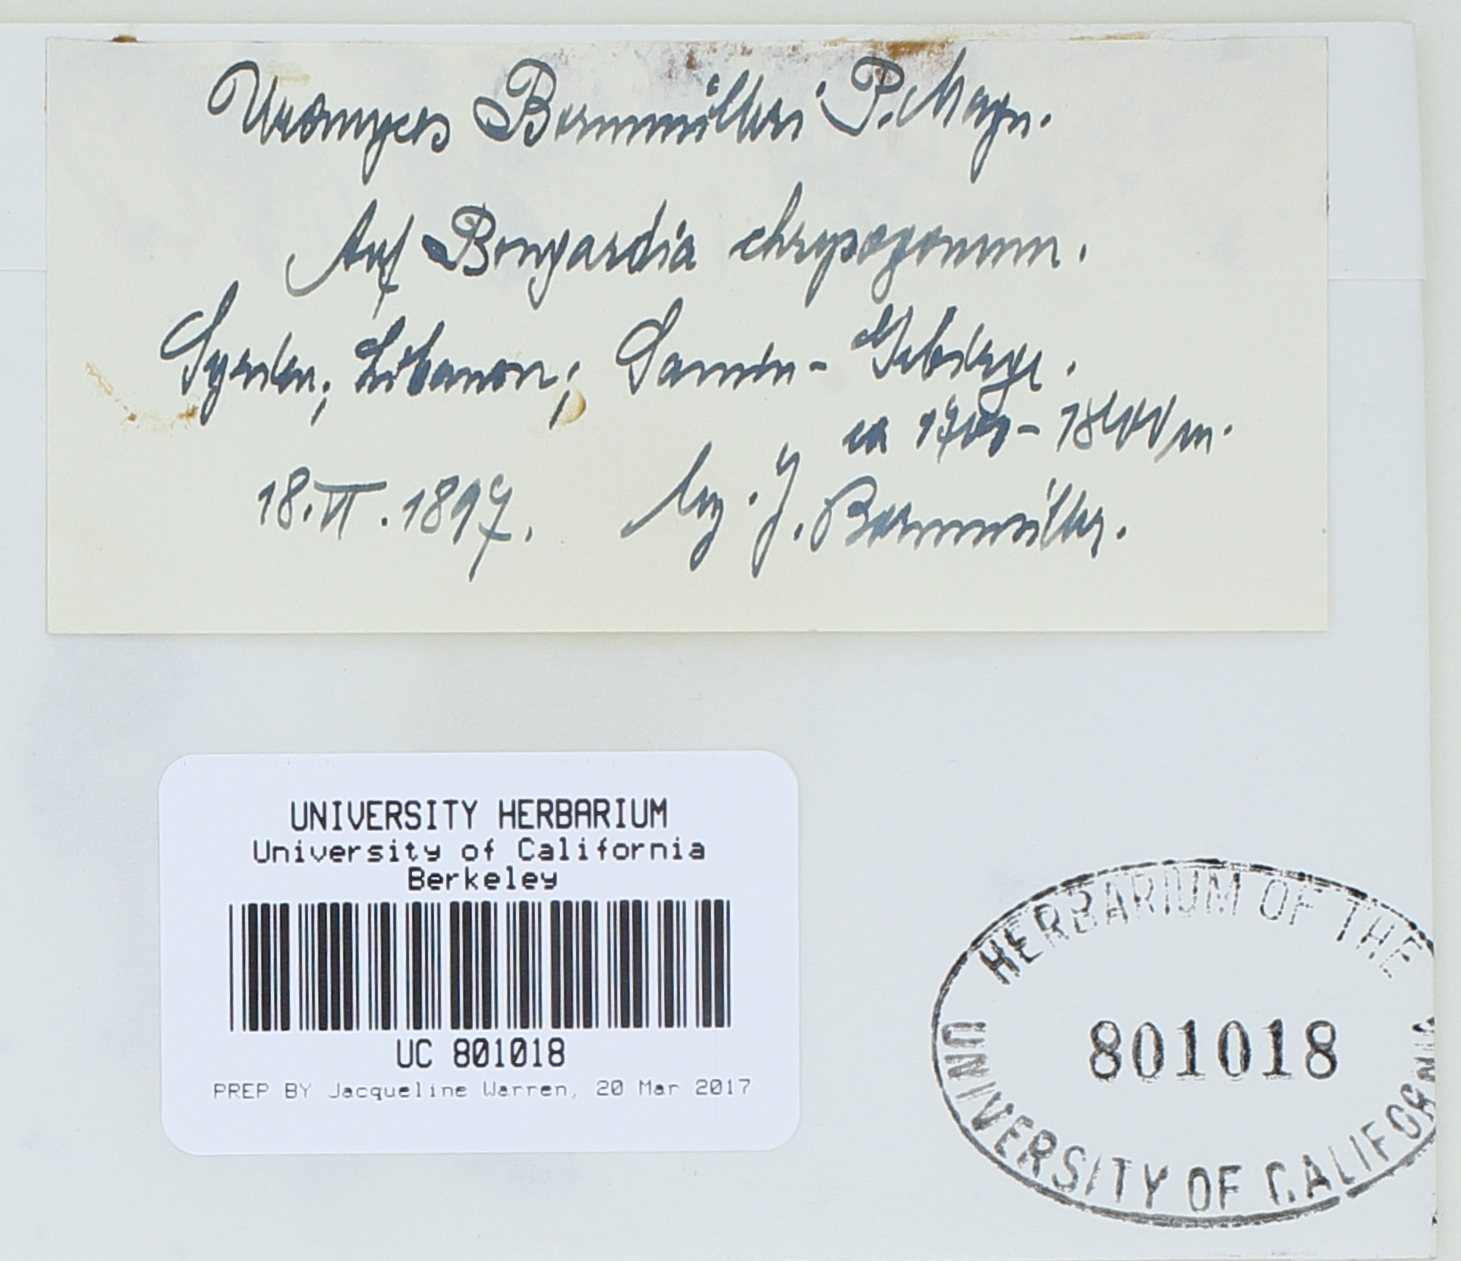 Uromyces Bornmülleri P. Magn.
Auf Bongardia chrysogonum.
Syrien; Libanon; Sanin-Gebirge.
ca 1700-1800 m.
18.VI.1897. leg. J. Bornmüller.
UNIVERSITY HERBARIUM
University of California
Berkeley
UC 801018
PREP BY Jacqueline Warren, 20 Mar 2017
HERBARIUM OF THE
801018
UNIVERSITY OF CALIFORNIA